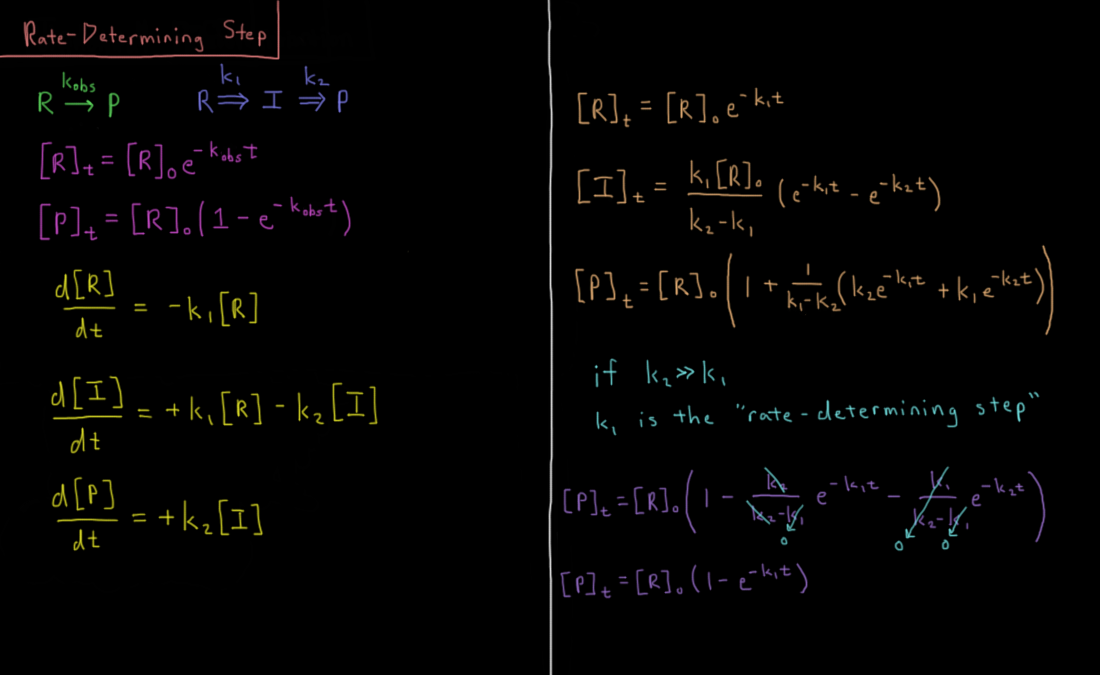 Rate-Determining Step
R →(kobs) P    R ⇒(k₁) I ⇒(k₂) P
[R]ₜ = [R]₀e^(-kobs t)
[P]ₜ = [R]₀(1 - e^(-kobs t))
d[R]/dt = -k₁[R]
d[I]/dt = +k₁[R] - k₂[I]
d[P]/dt = +k₂[I]
[R]ₜ = [R]₀e^(-k₁t)
[I]ₜ = k₁[R]₀/(k₂-k₁) (e^(-k₁t) - e^(-k₂t))
[P]ₜ = [R]₀(1 + 1/(k₁-k₂) (k₂e^(-k₁t) + k₁e^(-k₂t)))
if k₂ >> k₁
k₁ is the "rate-determining step"
[P]ₜ = [R]₀(1 - k₂/(k₂-k₁) e^(-k₁t) - k₁/(k₂-k₁) e^(-k₂t))
0 0 0
[P]ₜ = [R]₀(1 - e^(-k₁t))